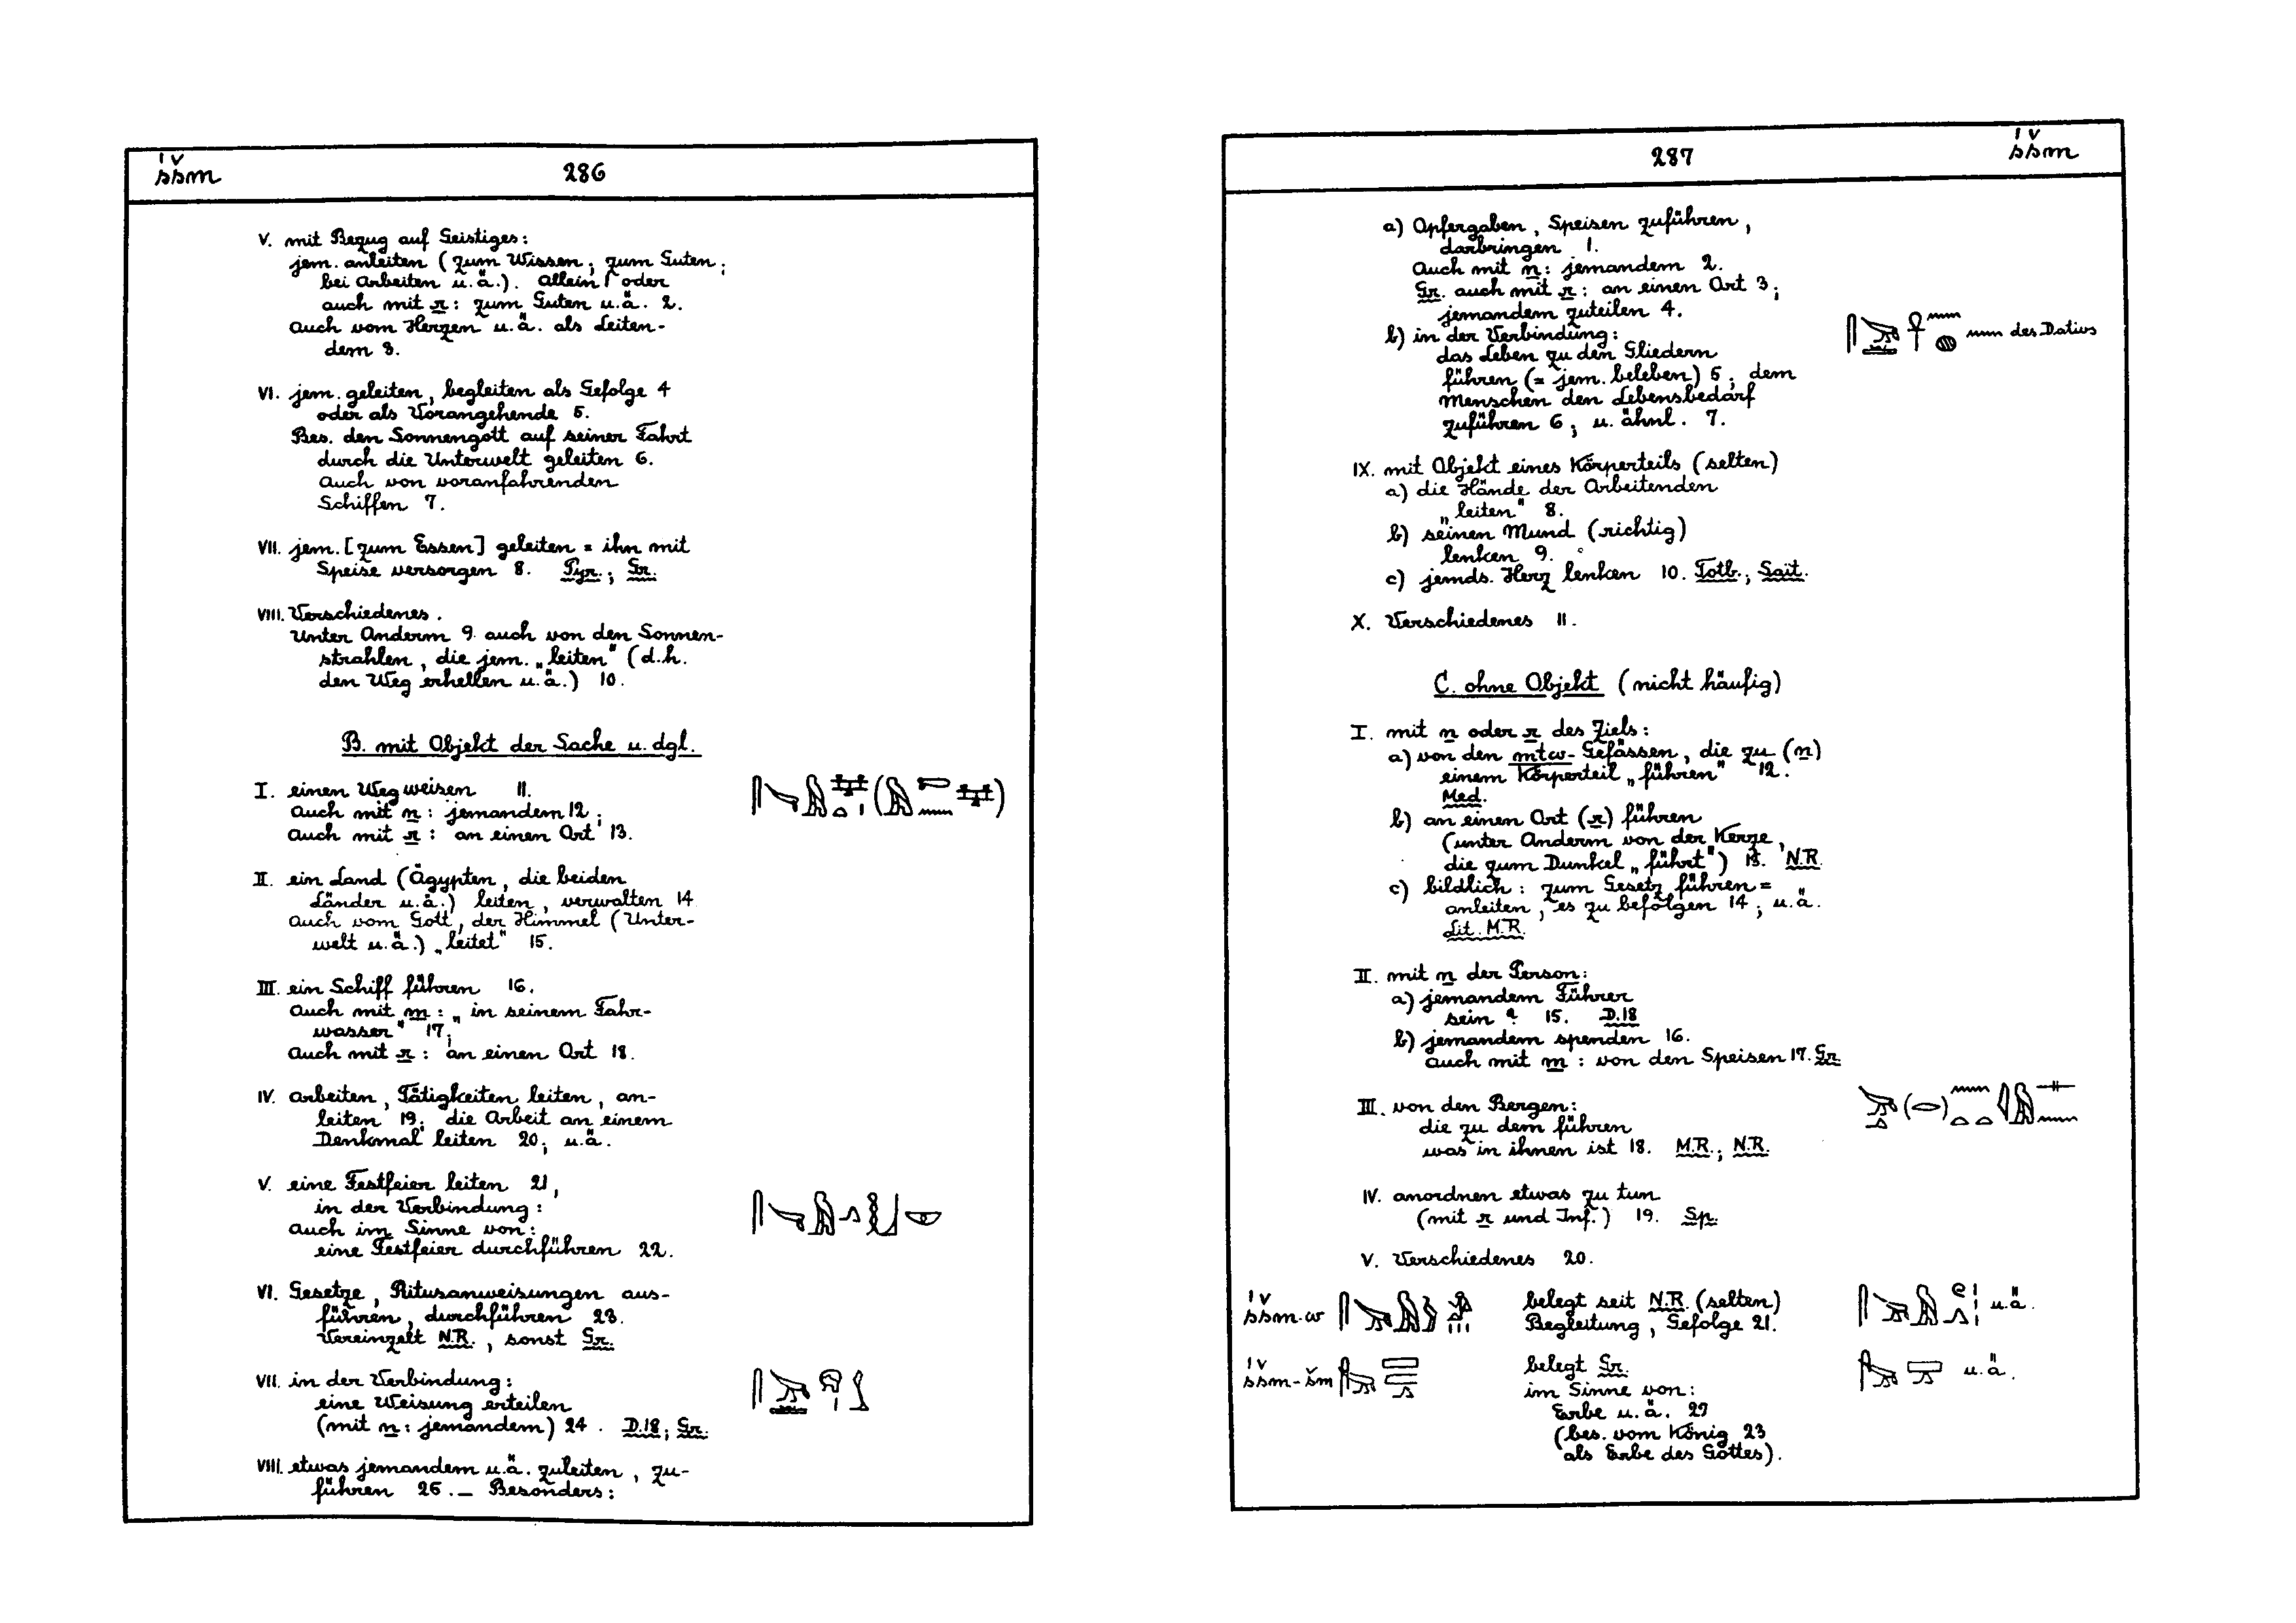 śšm
286
V. mit Bezug auf Geistiges:
jem. anleiten (zum Wissen, zum Guten,
bei Arbeiten u.ä.). Allein 1 oder
auch mit r: zum Guten u.ä. 2.
Auch vom Herzen u.ä. als Leiten-
dem 3.
VI. jem. geleiten, begleiten als Gefolge 4
oder als Vorangehende 5.
Bes. den Sonnengott auf seiner Fahrt
durch die Unterwelt geleiten 6.
Auch von voranfahrenden
Schiffen 7.
VII. jem. [zum Essen] geleiten = ihn mit
Speise versorgen 8. Pyr.; Gr.
VIII. Verschiedenes.
Unter Anderm 9 auch von den Sonnen-
strahlen, die jem. „leiten" (d.h.
den Weg erhellen u.ä.) 10.
B. mit Objekt der Sache u. dgl.
I. einen Weg weisen 11.
Auch mit n: jemandem 12;
Auch mit r: an einen Ort 13.
II. ein Land (Ägypten, die beiden
Länder u.ä.) leiten, verwalten 14
Auch vom Gott, der Himmel (Unter-
welt u.ä.) „leitet" 15.
III. ein Schiff führen 16.
Auch mit m: „in seinem Fahr-
wasser" 17;
Auch mit r: an einen Ort 18.
IV. Arbeiten, Tätigkeiten leiten, an-
leiten 19; die Arbeit an einem
Denkmal leiten 20; u.ä.
V. eine Festfeier leiten 21,
in der Verbindung:
Auch im Sinne von:
eine Festfeier durchführen 22.
VI. Gesetze, Ritusanweisungen aus-
führen, durchführen 23.
Vereinzelt N.R., sonst Gr.
VII. in der Verbindung:
eine Weisung erteilen
(mit n: jemandem) 24. D.18; Gr.
VIII. etwas jemandem u.ä. zuleiten, zu-
führen 25. — Besonders:
287
śšm
a) Opfergaben, Speisen zuführen,
darbringen 1.
Auch mit n: jemandem 2.
Gr. auch mit r: an einen Ort 3;
jemandem zuteilen 4.
b) in der Verbindung: des Dativs
das Leben zu den Gliedern
führen (= jem. beleben) 5; dem
Menschen den Lebensbedarf
zuführen 6; u. ähnl. 7.
IX. mit Objekt eines Körperteils (selten)
a) die Hände der Arbeitenden
„leiten" 8.
b) seinen Mund (richtig)
lenken 9.
c) jemds. Herz lenken 10. Totb.; Sait.
X. Verschiedenes 11.
C. ohne Objekt (nicht häufig)
I. mit n oder r des Ziels:
a) von den mtw-Gefässen, die zu (n)
einem Körperteil „führen" 12.
Med.
b) an einen Ort (r) führen
(unter Anderm von der Kerze,
die zum Dunkel „führt") 13. N.R.
c) bildlich: zum Gesetz führen =
anleiten, es zu befolgen 14; u.ä.
Lit. M.R.
II. mit n der Person:
a) jemandem Führer
sein ? 15. D.18
b) jemandem spenden 16.
auch mit m: von den Speisen 17. Gr.
III. von den Bergen:
die zu dem führen
was in ihnen ist 18. M.R.; N.R.
IV. anordnen etwas zu tun
(mit r und Inf.) 19. Sp.
V. Verschiedenes 20.
śšm·w belegt seit N.R. (selten) u.ä.
Begleitung, Gefolge 21.
śšm-šm belegt Gr. u.ä.
im Sinne von:
Erbe u.ä. 22
(bes. vom König 23
als Erbe des Gottes).